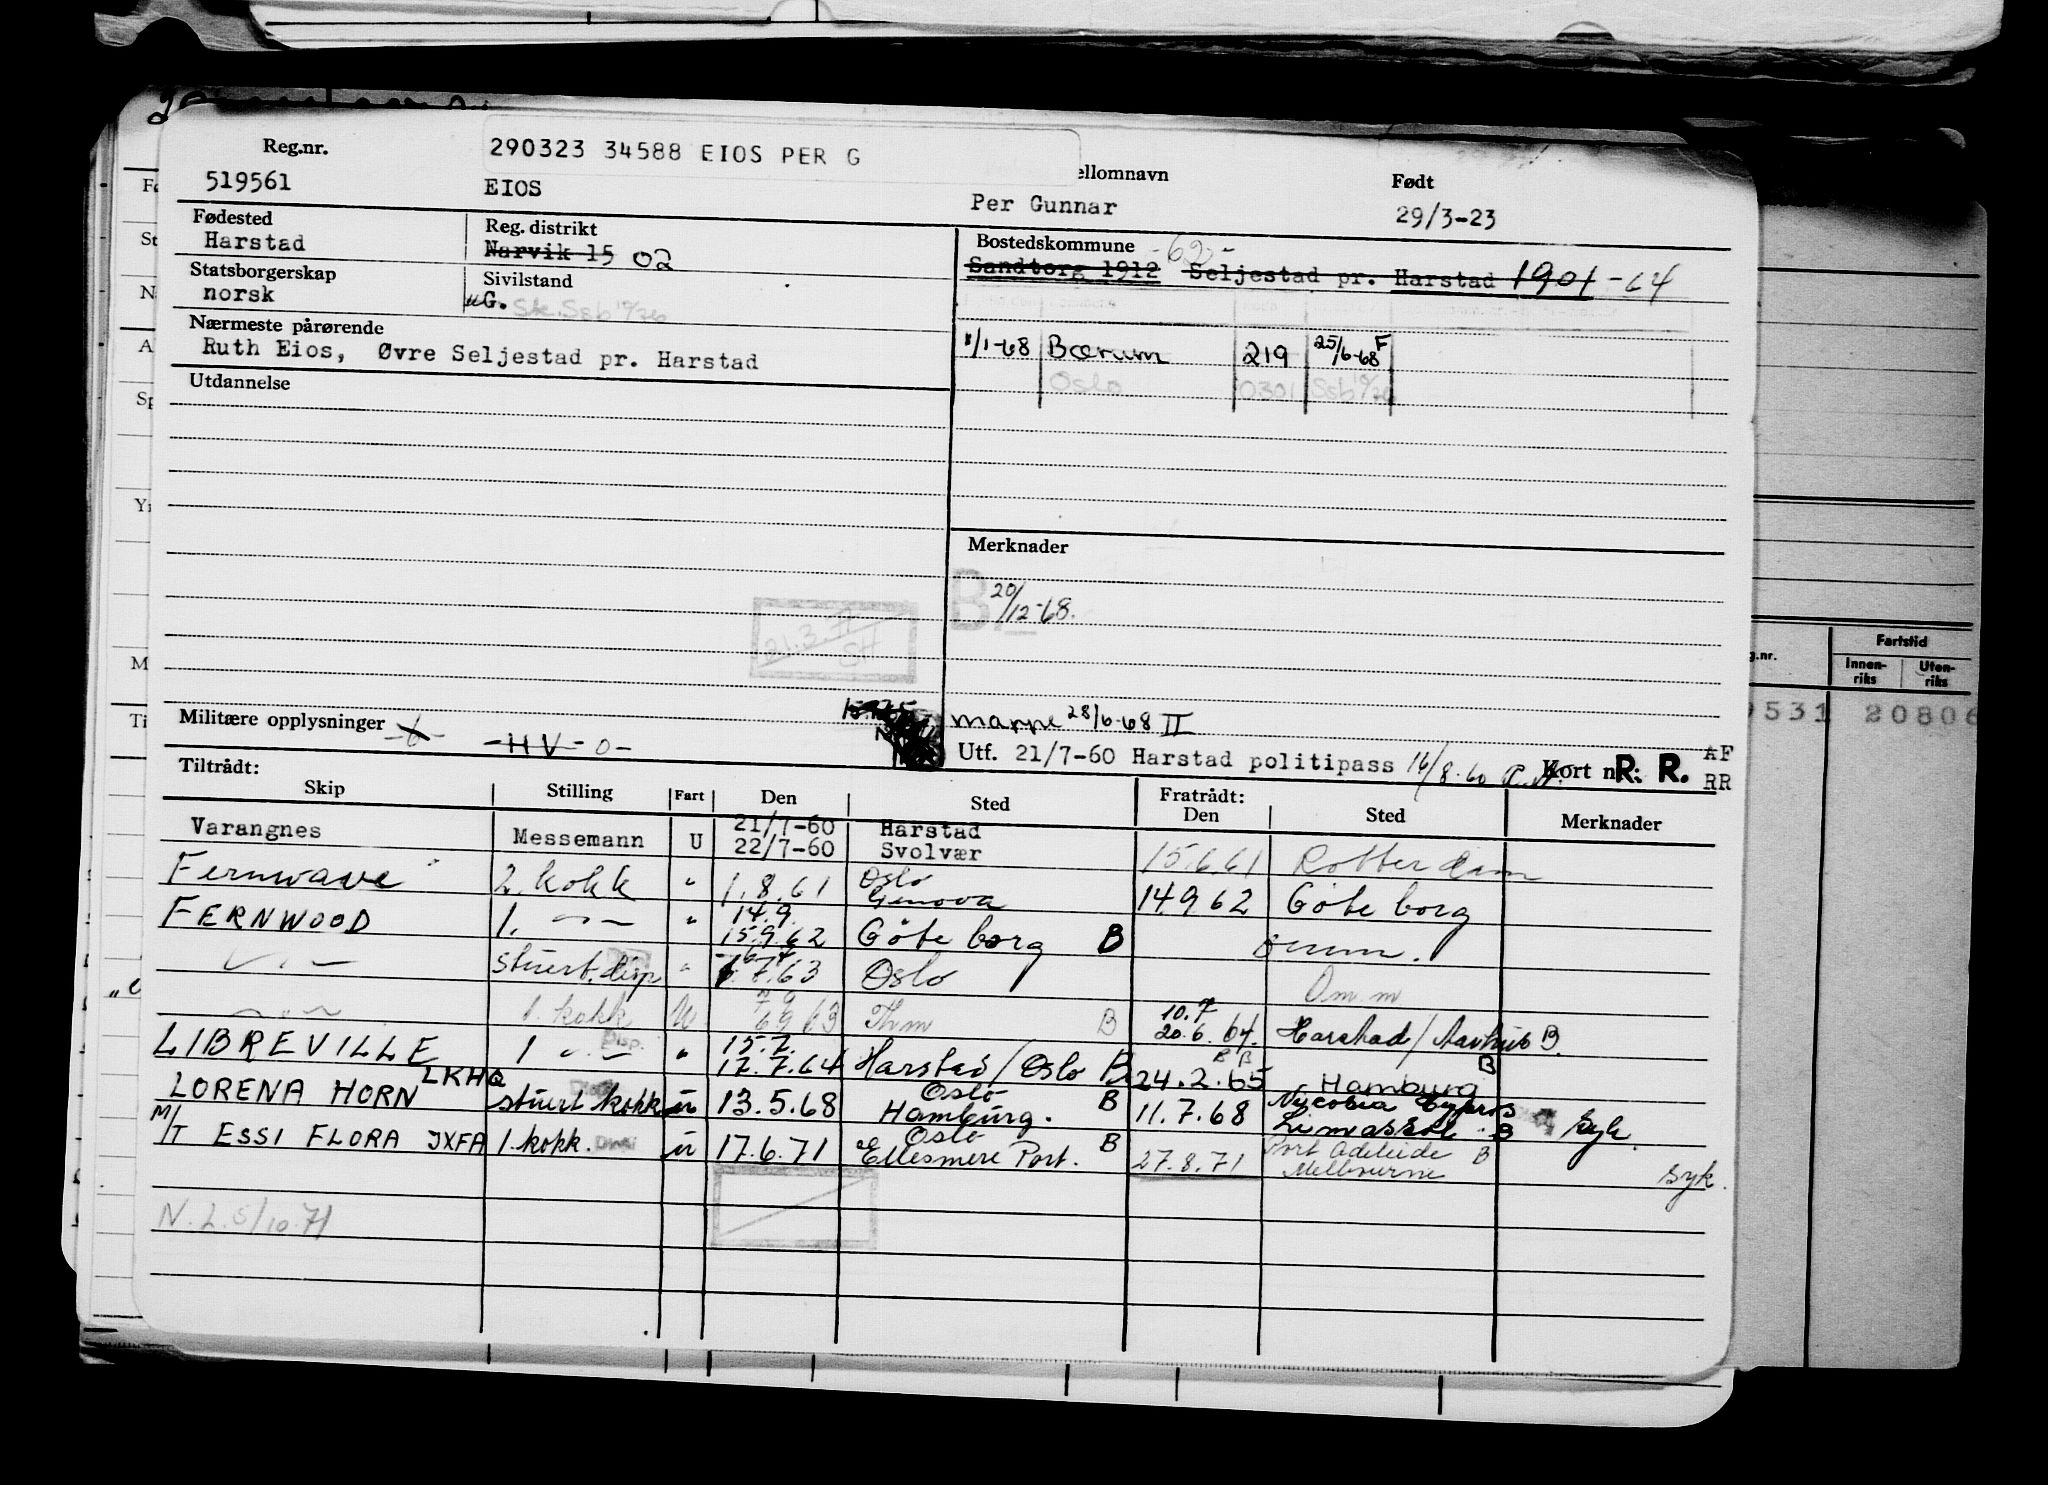 Reg.nr.
290323 34588 EIOS PER G
ellomnavn
Født
519561
EIOS
Per Gunnar
29/3-23
Fødested
Harstad
Reg. distrikt
Narvik 15 02
Bostedskommune -62-
Sandtorg 1912 Seljestad pr. Harstad 1901 -64
Statsborgerskap
norsk
Sivilstand
G.
Nærmeste pårørende
Ruth Eios, Øvre Seljestad pr. Harstad
1/1-68 Bærum 219 25/6-68 F
Oslo 0301 Ssb 10/76
Utdannelse
Merknader
B 20/12-68.
21.3.
Militære opplysninger
-HV-0-
mappe 28/6-68 II
Utf. 21/7-60 Harstad politipass 16/8-60
Kort nr: R. R.
AF
RR
Tiltrådt:
Skip Stilling Fart Den Sted Fratrådt: Den Sted Merknader
Varangnes Messemann U 21/7-60 22/7-60 Harstad Svolvær 15.6.61 Rotterdam
Fernwave 2. kokk " 1.8.61 Oslo Genova 14.9.62 Göteborg
FERNWOOD 1. -"- " 14.9. 15.9.62 Göteborg B Ømm.
-"- stuert. disp " 7.63 Oslo Øm.m
-"- 1. kokk U 7 9 6 9 63 Thm B 10.7 20.6.64. Harstad/Aarhus B.
LIBREVILLE 1 -"- Disp. " 15.7. 17.7.64 Harstad/Oslo B 24.2.65 Hamburg B
LORENA HORN LKHQ stuert kokk u 13.5.68 Oslo Hamburg. B 11.7.68 Nicosia Cypros Limassol B syk.
M/T ESSI FLORA JXFA 1. kokk. u 17.6.71 Oslo Ellesmere Port. B 27.8.71 Port Adeleide Melbourne B syk.
N.L. 5/10-71
g.nr.
Fartstid
Innen-
riks
Uten-
riks
9531 20806